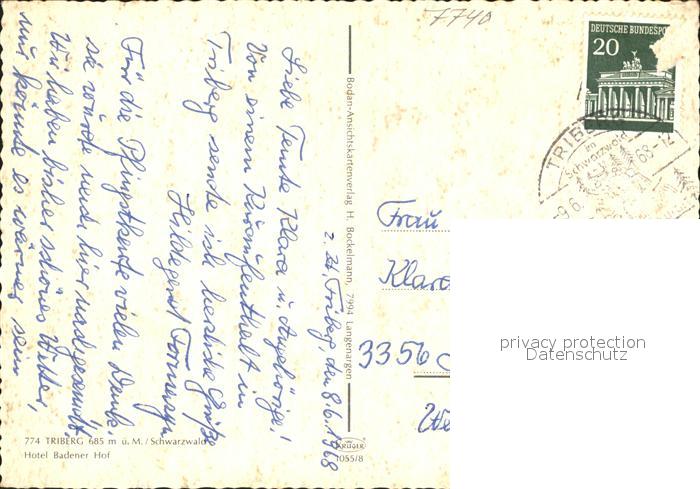 7740
DEUTSCHE BUNDESPO
20
TRIBE
im
Schwarzwald
68-12
-9.6.
z. Zt. Triberg den 8.6.1968
Liebe Tante Klara u. Angehörige!
Von einem Kuraufenthalt in
Triberg sende ich herzliche Grüße
Hildegard
Für die Pfingstkarte vielen Dank,
sie wurde mir hier nachgesandt.
Wir haben bisher schönes Wetter,
nur könnte es wärmer sein
Bodan-Ansichtskartenverlag H. Bockelmann, 7994 Langenargen
Frau
Klara
3356
We
privacy protection
Datenschutz
774 TRIBERG 685 m ü. M. / Schwarzwald
Hotel Badener Hof
KRÜGER
1055/8